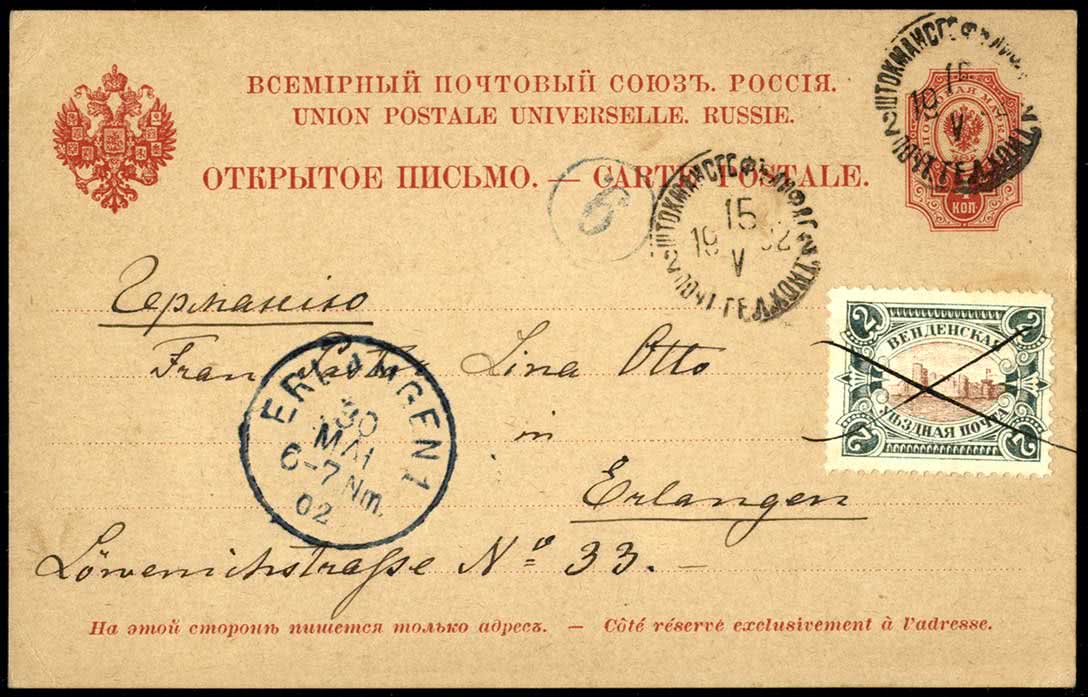 ВСЕМІРНЫЙ ПОЧТОВЫЙ СОЮЗЪ. РОССІЯ.
UNION POSTALE UNIVERSELLE. RUSSIE.
ОТКРЫТОЕ ПИСЬМО. — CARTE POSTALE.
КОП.
ШТОКМАНСГОФЪ
15
19
V
ШТОКМАНСГОФЪ
15
19 02
V
6
Германію
Lina Otto
in
Erlangen
Löwenichstraße Nº 33.
ERLANGEN 1
30
MAI
6-7 Nm.
02
2 2
ВЕНДЕНСКАЯ
УѢЗДНАЯ ПОЧТА
2 2
На этой сторонѣ пишется только адресъ. — Côté réservé exclusivement à l'adresse.